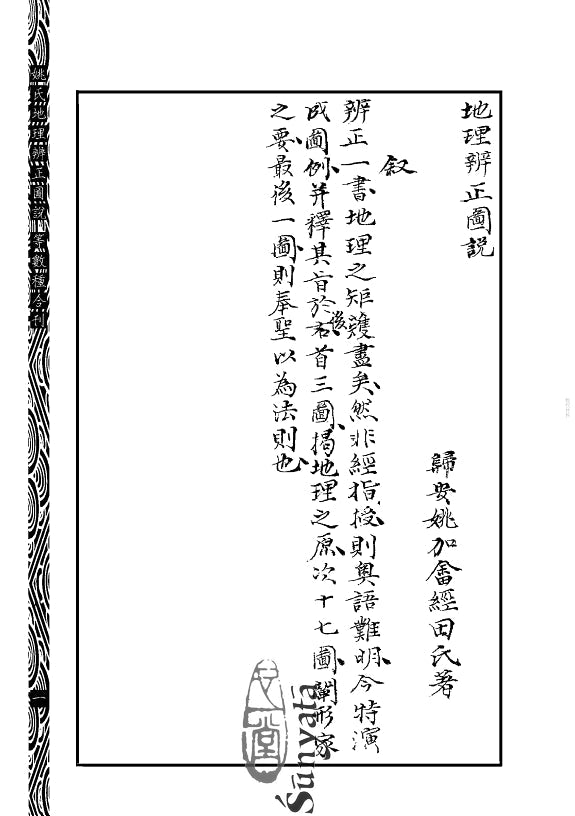 地理辨正圖說
歸安姚加畬經田氏著
叙
辨正一書、地理之矩矱盡矣、然非經指授、則奧語難明、今特演
成圖例、并釋其旨於右後、首三圖、揭地理之原、次十七圖、闡形家
之要、最後一圖、則奉聖以為法則也、
姚氏地理辨正圖說等數種合刊
一
心一堂
Śūnyatā